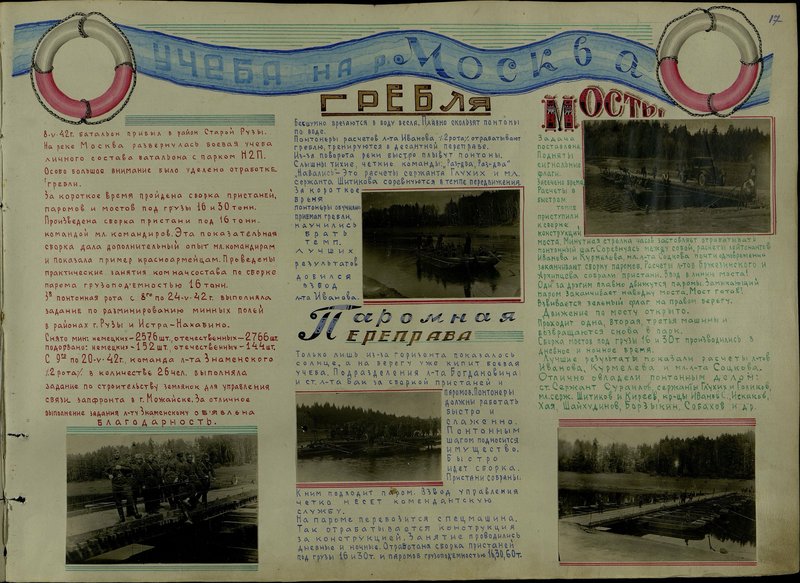 17
УЧЕБА НА Р. МОСКВА
8-V-42г. батальон прибыл в район Старой Рузы.
На реке Москва развернулась боевая учеба
личного состава батальона с парком Н2П.
Особо большое внимание было уделено отработке
гребли.
За короткое время пройдена сборка пристаней,
паромов и мостов под грузы 16 и 30 тонн.
Произведена сборка пристани под 16 тонн.
командой мл. командиров. Эта показательная
сборка дала дополнительный опыт мл. командирам
и показала пример красноармейцам. Проведены
практические занятия комначсостава по сборке
парома грузоподъемностью 16 тонн.
3я понтонная рота с 8го по 24-V-42г. выполняла
задание по разминированию минных полей
в районах г. Рузы и Истра-Нахабино.
Снято мин: немецких-2576шт, отечественных-2766шт
подорвано: немецких-152шт. отечественных-144шт.
С 9го по 20-V-42г. команда л-та Знаменского
/2 рота/ в количестве 26 чел. выполняла
задание по строительству землянок для управления
связи запфронта в г. Можайске. За отличное
выполнение задания л-ту Знаменскому объявлена
БЛАГОДАРНОСТЬ.
ГРЕБЛЯ
Бесшумно врезаются в воду весла. Плавно скользят понтоны
по воде.
Понтонеры расчетов л-та Иванова /2 рота/ отрабатывают
греблю, тренируются в десантной переправе.
Из-за поворота реки быстро плывут понтоны.
Слышны тихие, четкие команды: „Раз-два, Раз-два"
„Навались" - Это расчеты сержанта Глухих и мл.
сержанта Шитикова соревнуются в темпе передвижения.
За короткое
время
понтонеры обучились
приемам гребли,
научились
брать
темп.
Лучших
результатов
добился
взвод
л-та Иванова.
Паромная
ПЕРЕПРАВА
Только лишь из-за горизонта показалось
солнце, а на берегу уже кипит боевая
учеба. Подразделения л-та Богдановича
и ст. л-та Бам за сборкой пристаней и
паромов. Понтонеры
должны работать
быстро и
слаженно.
Понтонным
шагом подносится
имущество.
Быстро
идет сборка.
Пристани собраны.
К ним подходит паром. Взвод управления
четко несет комендантскую
службу.
На пароме перевозится спецмашина.
Так отрабатывается конструкция
за конструкцией. Занятие проводились
дневные и ночные. Отработана сборка пристаней
под грузы 16 и 30т. и паромов грузоподъемностью 16,30,60т.
МОСТЫ
Задача
поставлена.
Подняты
сигнальные
флаги.
Засечено время.
В
быстром
темпе
приступили
к сборке
конструкции
моста. Минутная стрелка часов заставляет отрабатывать
понтонный шаг. Соревнуясь между собой, расчеты лейтенантов
Иванова и Курмелева, мл. л-та Соцкова почти одновременно
заканчивают сборку паромов. Расчеты л-тов Бржезинского и
Архипцева собрали пристани. Ввод в линию моста!
Один за другим плавно движутся паромы. Замыкающий
паром заканчивает наводку моста. Мост готов!
Взвивается зеленый флаг на правом берегу.
Движение по мосту открыто.
Проходит одна, вторая, третья машины и
возвращаются снова в парк.
Сборка мостов под грузы 16 и 30т производились в
дневное и ночное время.
Лучшие результаты показали расчеты л-тов
Иванова, Курмелева и мл. л-та Соцкова.
Отлично овладели понтонным делом:
ст. сержант Сураилов, сержанты Глухих и Новиков,
мл. серж. Шитиков и Киреев, кр-цы Иванов С., Искаков,
Хая, Шайхудинов, Борзыкин, Собахов и др.